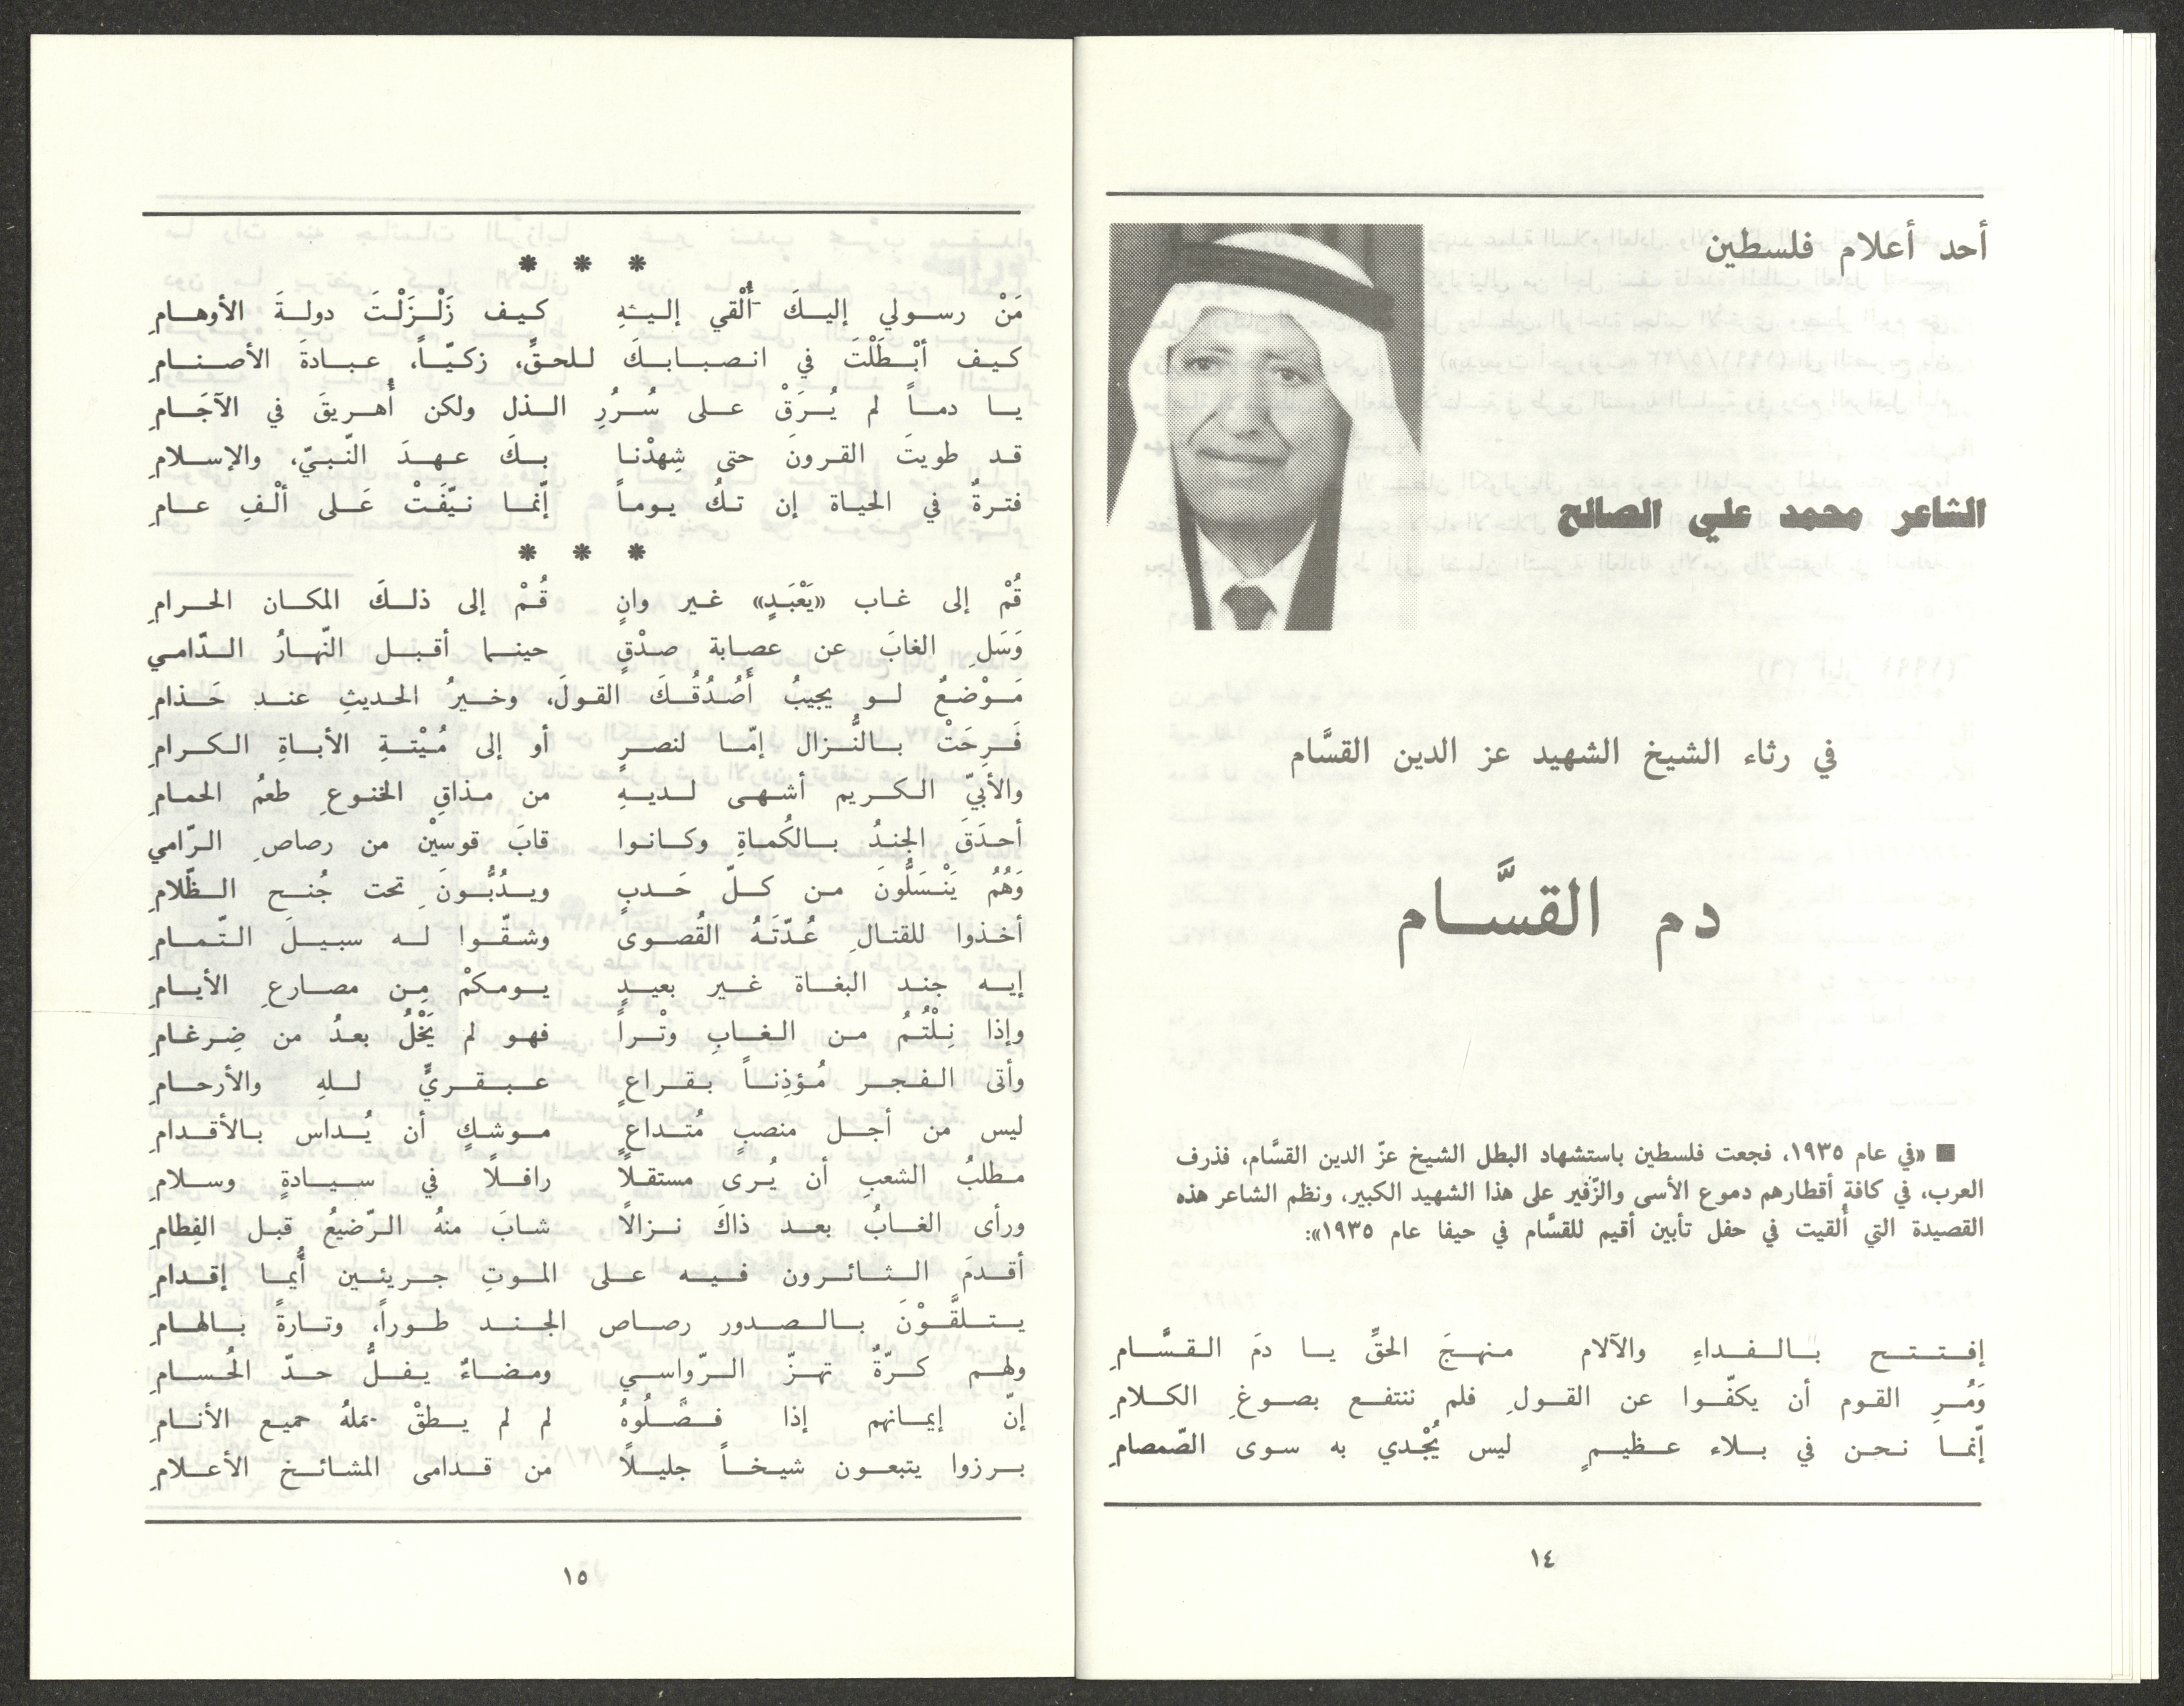 أحد أعلام فلسطين
الشاعر محمد علي الصالح
في رثاء الشيخ الشهيد عز الدين القسَّام
دم القسَّام
■ «في عام ١٩٣٥، فجعت فلسطين باستشهاد البطل الشيخ عزّ الدين القسَّام، فذرف
العرب، في كافة أقطارهم دموع الأسى والزّفير على هذا الشهيد الكبير، ونظم الشاعر هذه
القصيدة التي ألقيت في حفل تأبين أقيم للقسَّام في حيفا عام ١٩٣٥»:
إفتتح بالفداءِ والآلام منهجَ الحقِّ يا دمَ القسَّامِ
وَمُرِ القوم أن يكفّوا عن القولِ فلم ننتفع بصوغِ الكلامِ
إنّما نحن في بلاء عظيمٍ ليس يُجْدي به سوى الصّمصامِ
١٤
* * *
مَنْ رسولي إليكَ أُلْقي إليهِ كيف زَلْزَلْتَ دولةَ الأوهامِ
كيف أبْطَلْتَ في انصبابكَ للحقِّ، زكيّاً، عبادةَ الأصنامِ
يا دماً لم يُرَقْ على سُرُرِ الذل ولكن أُهريقَ في الآجَامِ
قد طويتَ القرونَ حتى شِهدْنا بكَ عهدَ النّبيّ، والإسلامِ
فترةٌ في الحياة إن تكُ يوماً إنّما نيّفَتْ عَلى ألْفِ عامِ
* * *
قُمْ إلى غاب «يَعْبَدٍ» غير وانٍ قُمْ إلى ذلكَ المكان الحرامِ
وَسَلِ الغابَ عن عصابة صدْقٍ حينما أقبل النّهارُ الدّامي
مَوْضعٌ لو يجيبُ أَصْدُقُكَ القولَ، وخيرُ الحديثِ عند حَذامِ
فَرِحَتْ بالنُّزال إمّا لنصرٍ أو إلى مُيْتةِ الأباةِ الكرامِ
والأبيّ الكريم أشهى لديهِ من مذاقِ الخنوعِ طعمُ الحمامِ
أحدَقَ الجندُ بالكُماةِ وكانوا قابَ قوسيْن من رصاصِ الرّامي
وَهُمُ يَنْسَلُّونَ من كلّ حَدبٍ ويدُبُّونَ تحت جُنح الظّلامِ
أخذوا للقتالِ عُدّتَهُ القُصوى وشقّوا له سبيلَ التّمامِ
إيه جند البغاة غير بعيدٍ يومكمْ مِن مصارعِ الأيامِ
وإذا نِلْتُمُ من الغابِ وتْراً فهو لم يَخْلُ بعدُ من ضِرغامِ
وأتى الفجر مُؤذِناً بقراعٍ عبقريٍّ للهِ والأرحامِ
ليس من أجل منصبٍ مُتداعٍ موشكٍ أن يُداس بالأقدامِ
مطلبُ الشعبِ أن يُرى مستقلاً رافلاً في سيادةٍ وسلامِ
ورأى الغابُ بعد ذاكَ نزالاً شابَ منهُ الرّضيعُ قبل الفِطامِ
أقدمَ الثائرون فيه على الموتِ جريئين أيُّما إقدامِ
يتلقَّوْنَ بالصدور رصاص الجند طوراً، وتارةً بالهامِ
ولهم كرّةٌ تهزّ الرّواسي ومضاءٌ يفلُّ حدّ الحُسامِ
إنّ إيمانهم إذا فصَّلُوهُ لم لم يطقْ حملهُ جميع الأنامِ
برزوا يتبعون شيخاً جليلاً من قدامى المشائخ الأعلامِ
١٥